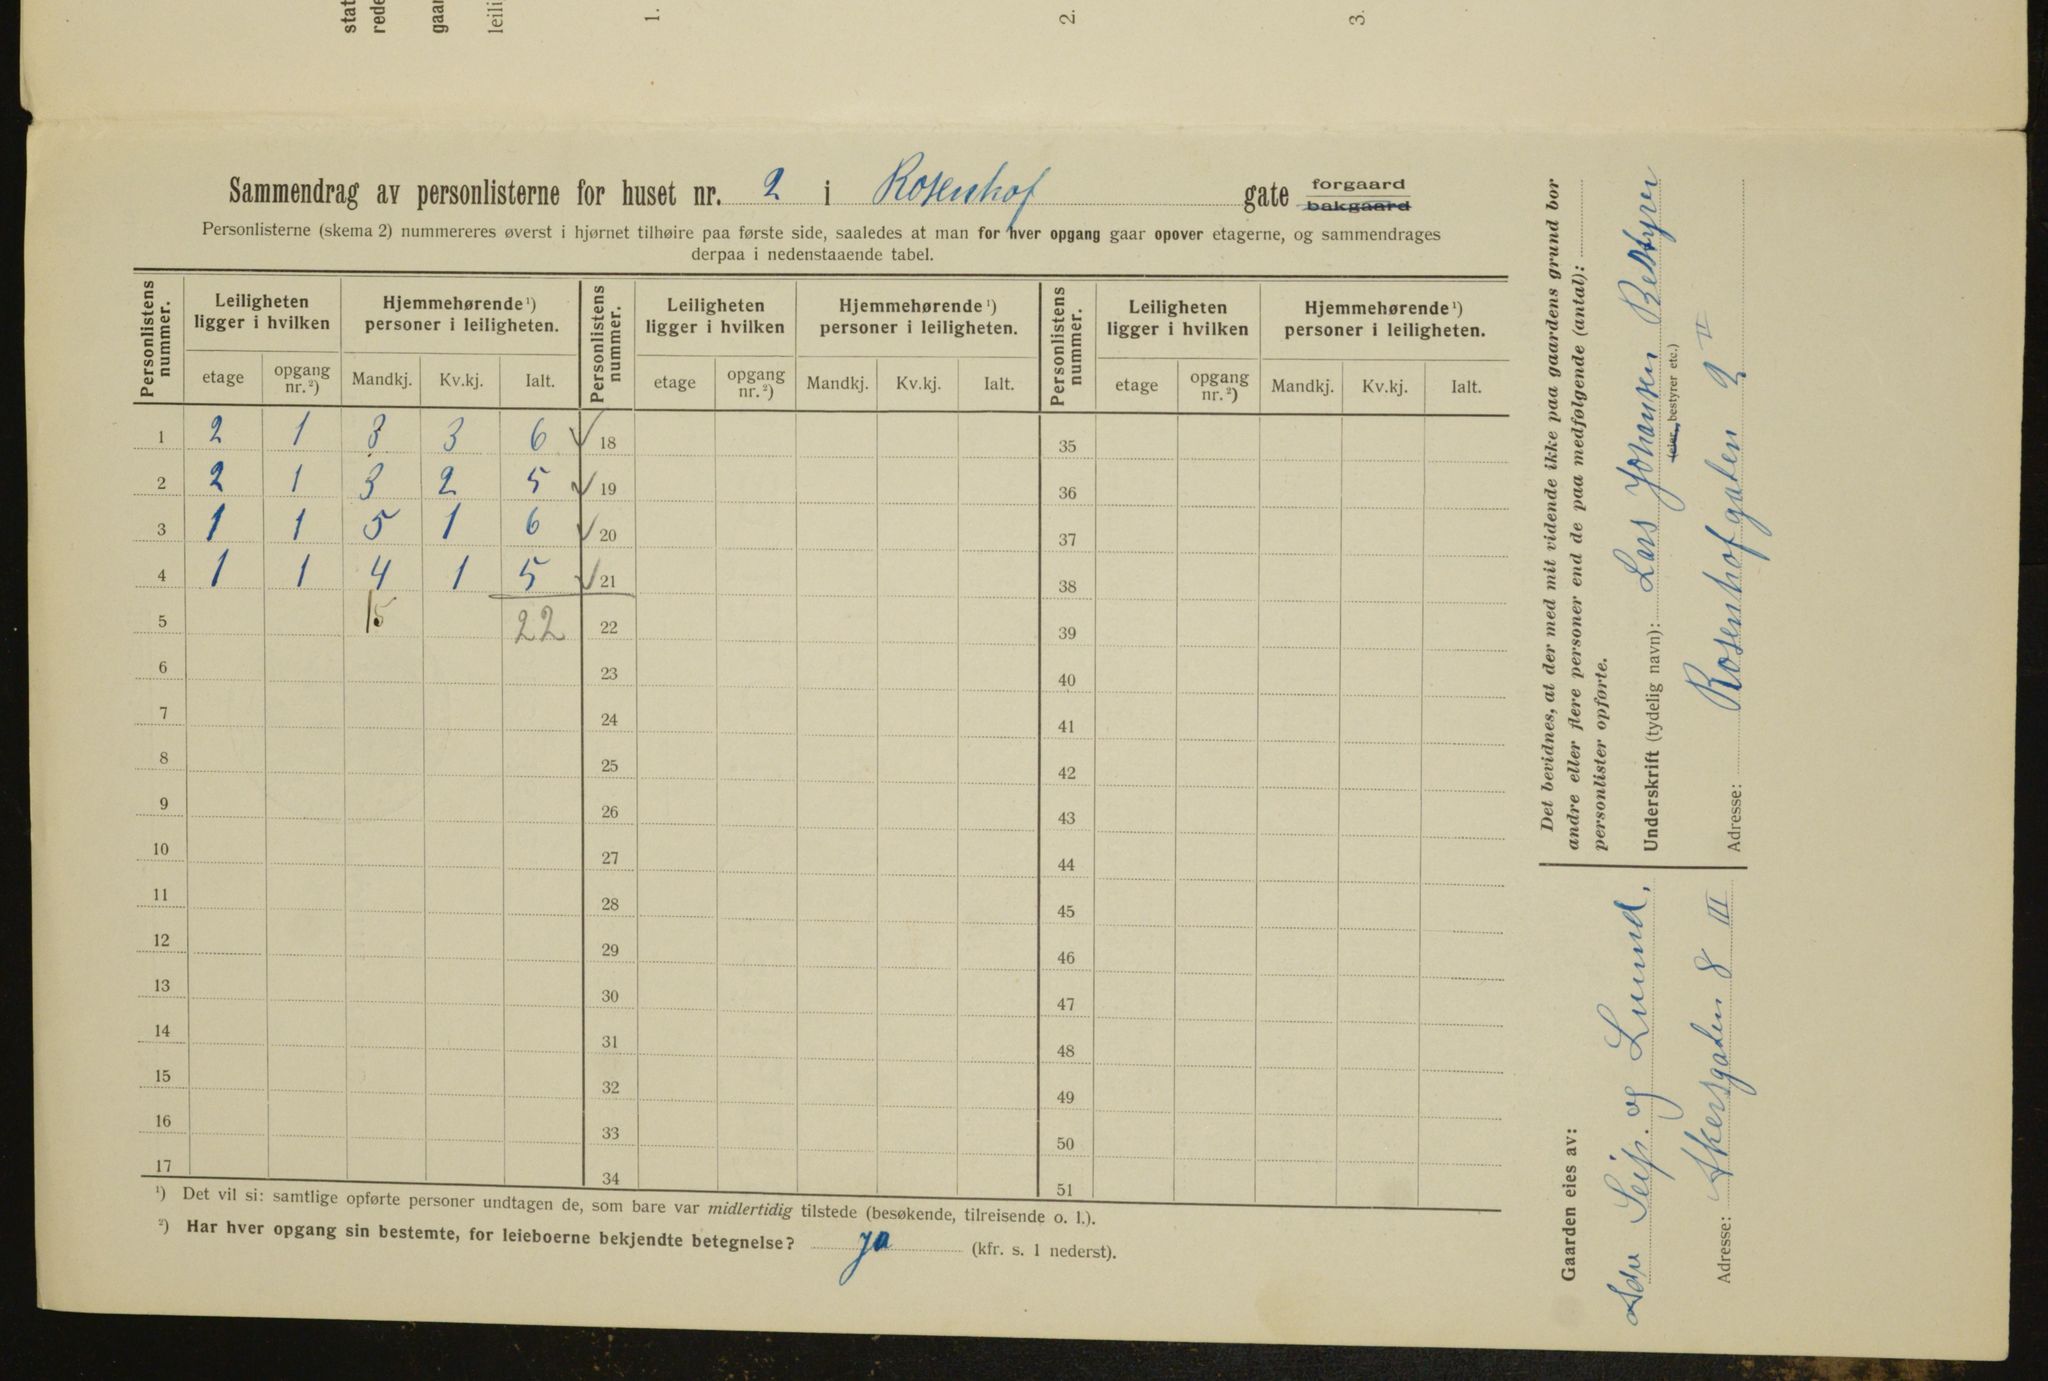 stat
rede
gaar
leili
1.
2.
3.
Sammendrag av personlisterne for huset nr. 2 i Rosenhof gate forgaard bakgaard
Personlisterne (skema 2) nummereres øverst i hjørnet tilhøire paa første side, saaledes at man for hver opgang gaar opover etagerne, og sammendrages
derpaa i nedenstaaende tabel.
Personlistens nummer. Leiligheten ligger i hvilken Hjemmehørende ¹) personer i leiligheten. Personlistens nummer. Leiligheten ligger i hvilken Hjemmehørende ¹) personer i leiligheten. Personlistens nummer. Leiligheten ligger i hvilken Hjemmehørende ¹) personer i leiligheten.
etage opgang nr. ²) Mandkj. Kv.kj. Ialt. etage opgang nr. ²) Mandkj. Kv.kj. Ialt. etage opgang nr. ²) Mandkj. Kv.kj. Ialt.
1 2 1 3 3 6 ✓ 18 35
2 2 1 3 2 5 ✓ 19 36
3 1 1 5 1 6 ✓ 20 37
4 1 1 4 1 5 ✓ 21 38
5 15 22 22 39
6 23 40
7 24 41
8 25 42
9 26 43
10 27 44
11 28 45
12 29 46
13 30 47
14 31 48
15 32 49
16 33 50
17 34 51
¹) Det vil si: samtlige opførte personer undtagen de, som bare var midlertidig tilstede (besøkende, tilreisende o. l.).
²) Har hver opgang sin bestemte, for leieboerne bekjendte betegnelse? ja (kfr. s. 1 nederst).
Det bevidnes, at der med mit vidende ikke paa gaardens grund bor
andre eller flere personer end de paa medfølgende (antal):
personlister opførte.
Underskrift (tydelig navn): Lars Johansen Bestyrer
(eier, bestyrer etc.)
Adresse: Rosenhofgaten 2 II
Gaarden eies av:
og Lunnd,
Adresse: Akersgaten 8 III